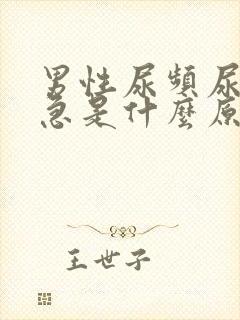 男性尿頻尿
急是什麼原
王世子